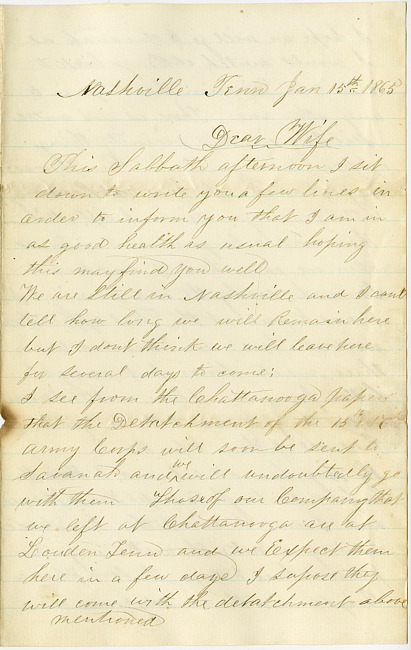 Nashville Tenn Jan 15th 1865
Dear Wife
This Sabbath afternoon I sit
down to write you a few lines in
order to inform you that I am in
as good health as usual hoping
this may find you well
We are Still in Nashville and I cant
tell how long we will Remain here
but I dont think we will leave here
for several days to come;
I see from the Chattanooga papers
that the Detatchment of the 15th
army Corps will soon be sent to
Savanah and we will undoubtedly go
with them Those of our Company that
we left at Chattanooga are at
Louden Tenn and we Expect them
here in a few days I supose they
will come with the detatchment above
mentioned